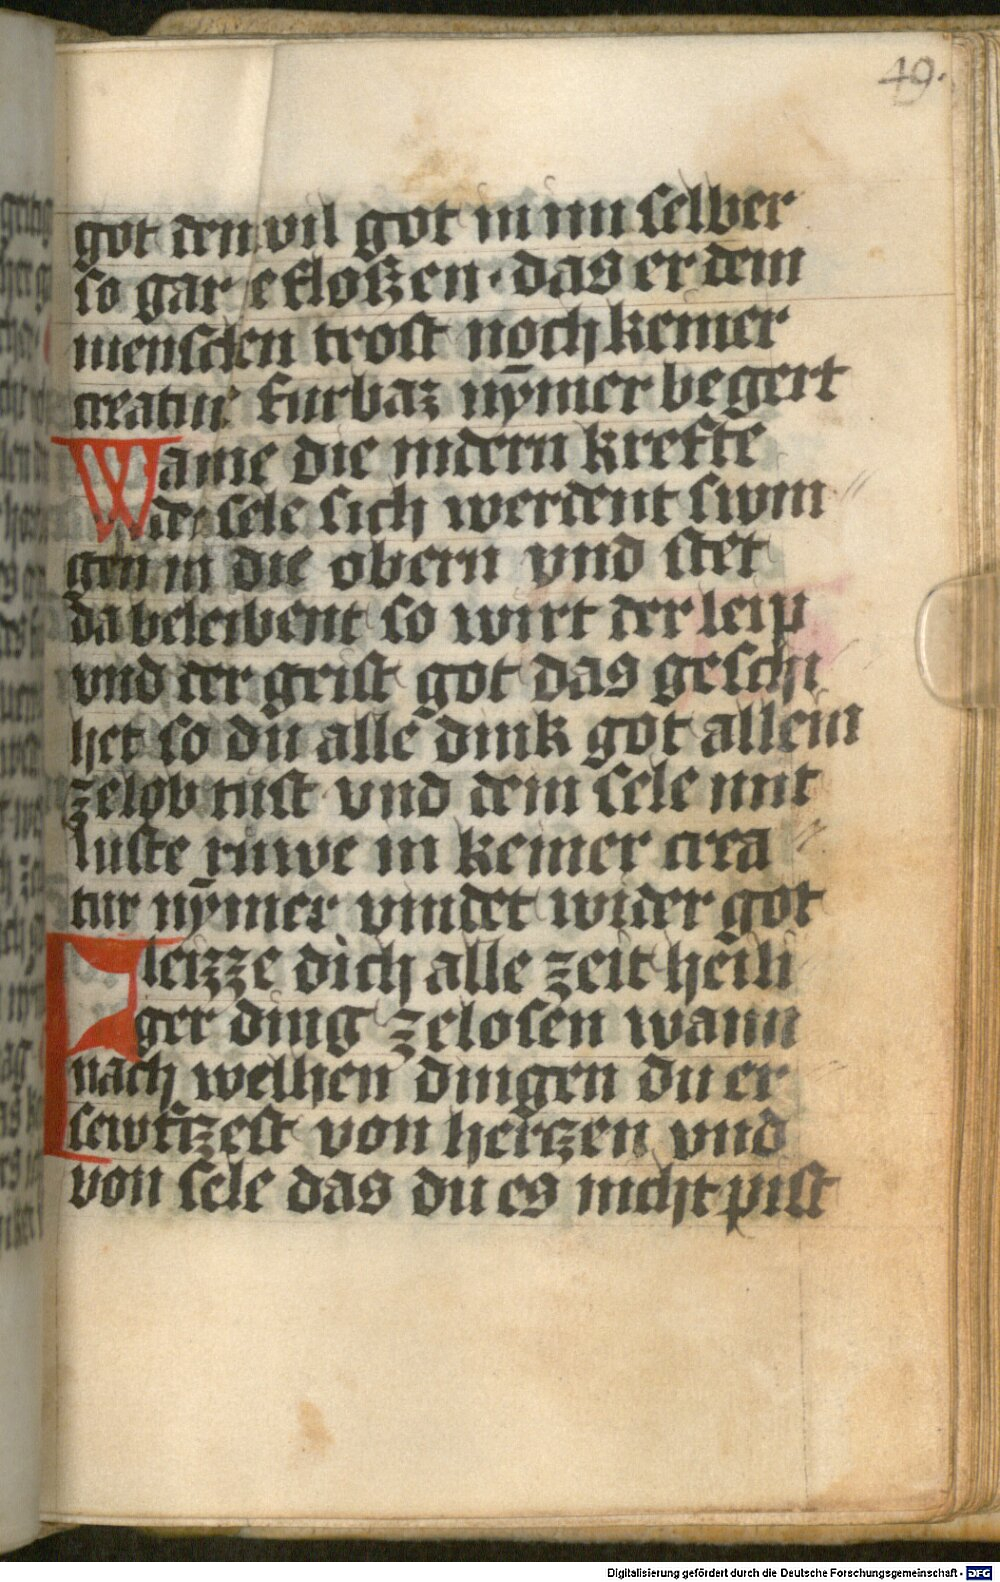 49.
got den vil got in im selber
so gar e floßen · das er dem
menschen trost noch keiner
creatur furbaz nȳmer begert
Wanne die nidern krefte
der sele sich werdent swin//
gen in die obern vnd stet
da beleibent so wirt der leip
vnd der geist got das geschi
het so du alle dink got allein
zelob tust vnd dein sele mit
luste ruwe in keiner crea //
tur nȳmer vindet wider got
Fleizze dich alle zeit heili
ger ding zelosen wann
nach welhen dingen du er
sewftzest von hertzen vnd
von sele das du es nicht pist
Digitalisierung gefördert durch die Deutsche Forschungsgemeinschaft - DFG